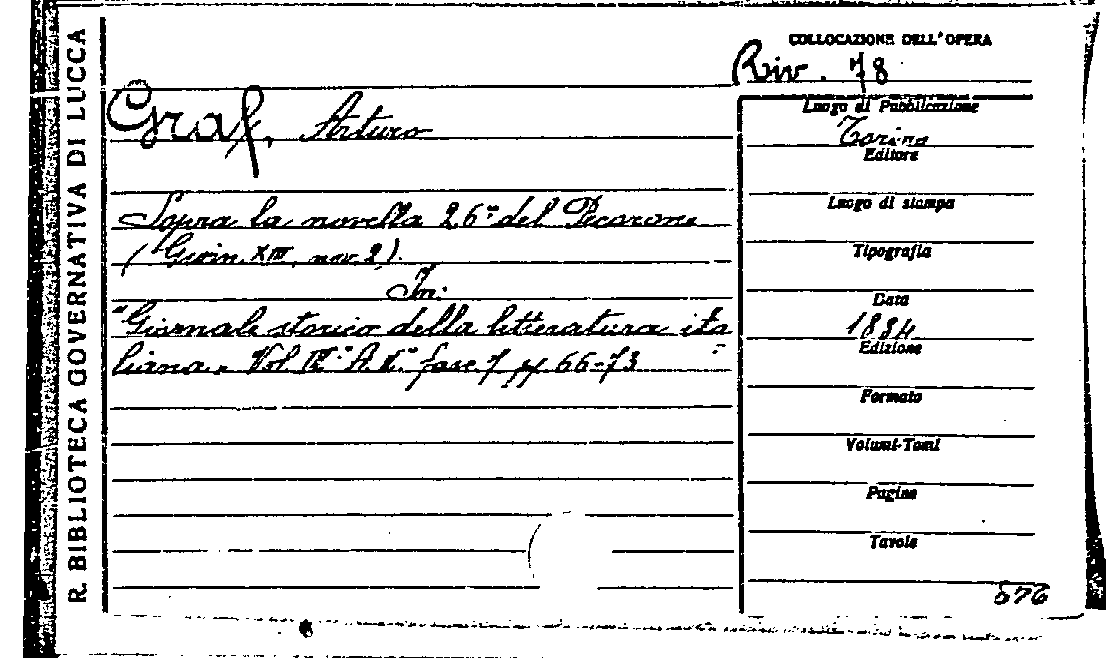 R. BIBLIOTECA GOVERNATIVA DI LUCCA
COLLOCAZIONE DELL'OPERA
Riv. 78
Graf, Arturo
Sopra la novella 26ª del Pecorone
(Giorn. XIII, nov. 2).
In:
"Giornale storico della letteratura ita
liana" Vol IV° A. II° fasc 7 pp 66-73
Luogo di Pubblicazione
Torino
Editore
Luogo di stampa
Tipografia
Data
1884
Edizione
Formato
Volumi-Tomi
Pagine
Tavole
576